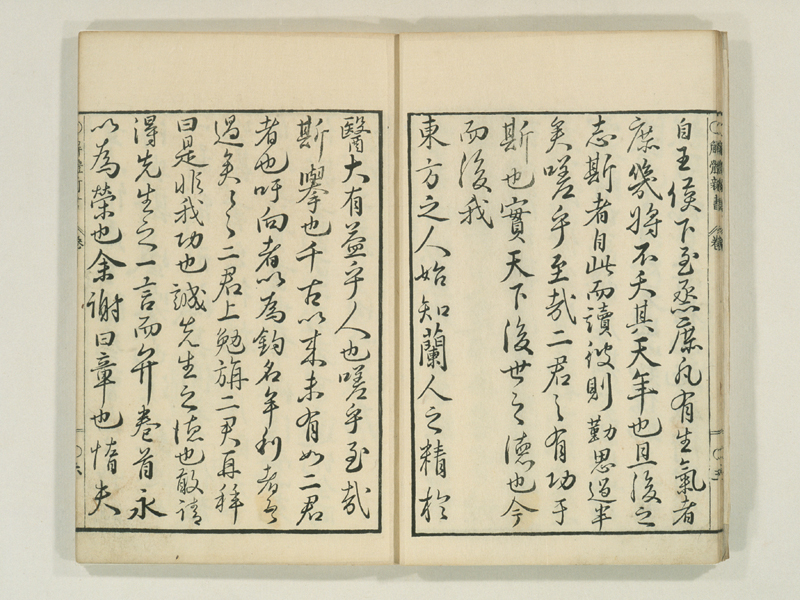 自王侯下至烝庶凡有生氣者
庶幾將不夭其天年也且後之
志斯者自此而讀彼則勤思過半
矣嗟乎至哉二君之有功于
斯也實天下後世之德也今
而後我
東方之人始知蘭人之精於
醫大有益乎人也嗟乎至哉
斯擧也千古以來未有如二君
者也吁向者以為釣名牟利者
過矣々々二君上勉旃二君再拜
曰是非我功也誠先生之德也敢請
得先生之一言而弁卷首永
以為榮也余謝曰章也惰夫
解體新書
卷